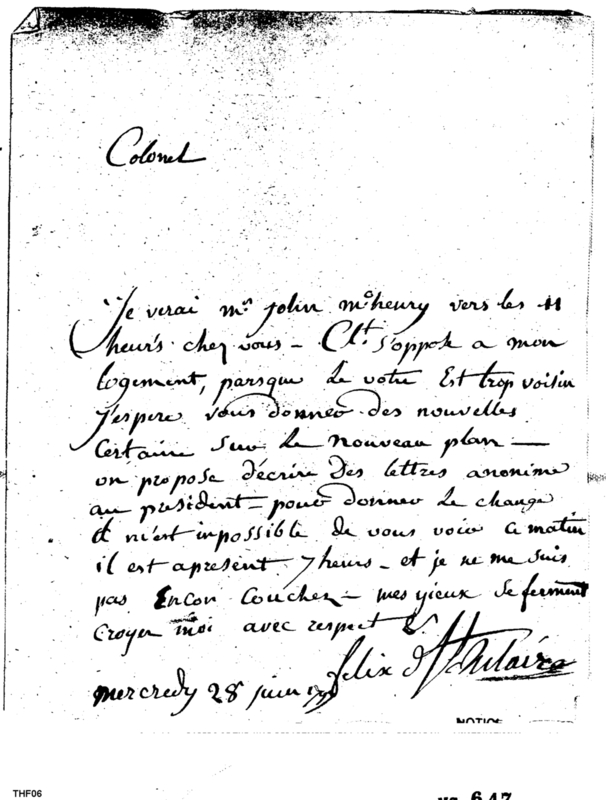 Colonel
Je verai mr john mc henry vers les 11
heurs chez vous - Clt s'oppose a mon
logement, parsque le votre Est trop voisin
j'espere vous donner des nouvelles
Certaine sur le nouveau plan —
on propose décrire des lettres anonime
au president - pour donner le change
il m'est inpossible de vous voir ce matin
il est apresent 7 heurs - et je ne me suis
pas Encor Couchez - mes yieux se ferment
Croyer moi avec respect &.
felix d St hilaire
mercredy 28 juin
NOTICE
THF06
647